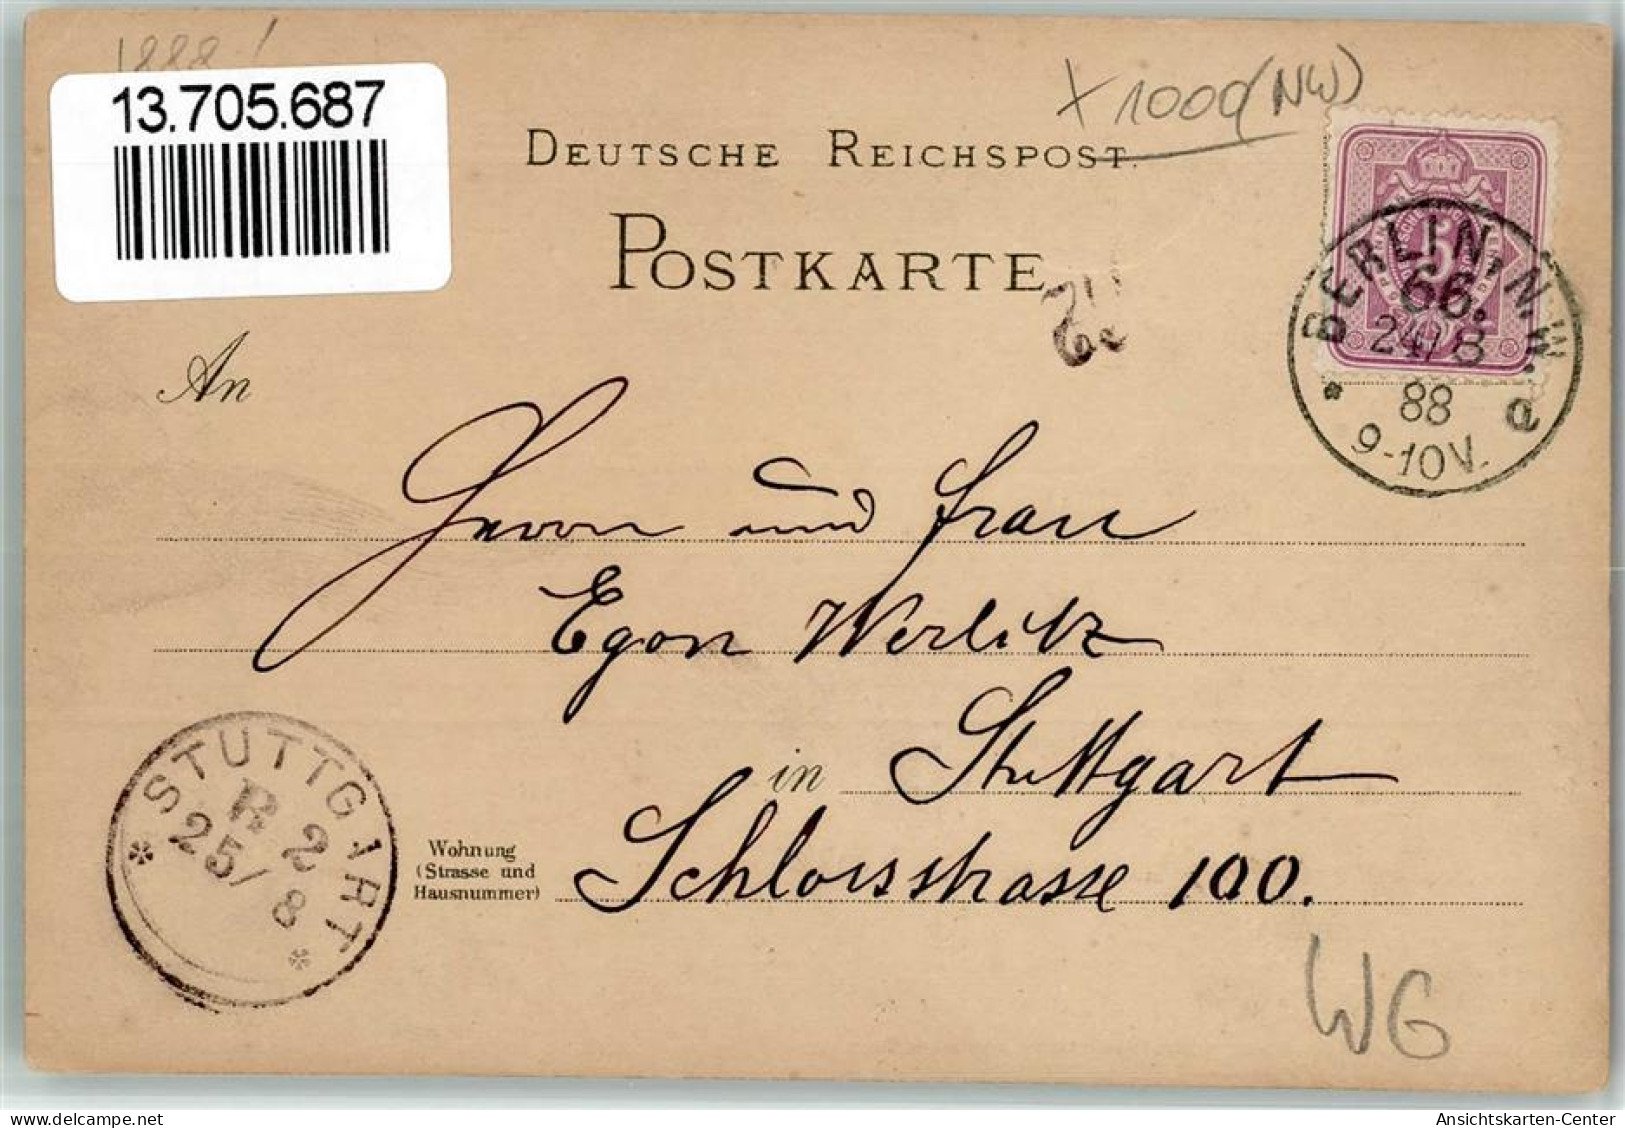 1888!
13.705.687
X 1000 (NW)
DEUTSCHE REICHSPOST.
POSTKARTE
BERLIN, N.W.
66.
24/8
88
9-10V.
* a
An
Herrn und Frau
Egon Werlitz
in Stuttgart
Wohnung
(Strasse und
Hausnummer)
Schlossstrasse 100.
STUTTGART
R 2
25/8
WG
delcampe.net
Ansichtskarten-Center